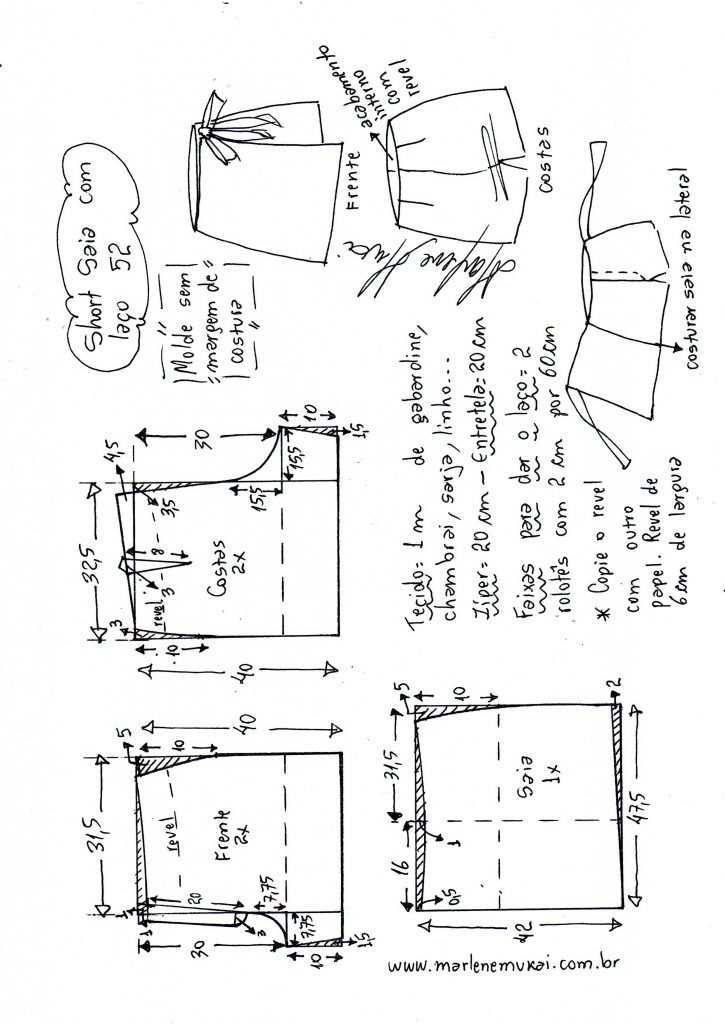 Short Saia com
laço 52
Molde sem
margem de
costura
Frente
acabamento
interno
com
revel
costas
costurar saia na lateral
Tecido = 1 m de gabardine,
chambrai, sarja, linho...
Zíper = 20 cm - Entretela = 20 cm
Faixas para dar o laço = 2
rolotês com 2 cm por 60 cm
* Copie o revel
com outro
papel. Revel de
6 cm de largura
32,5
4,5
3
3,5
8
3
30
10
revel
Costas
2x
15,5
15,5
10
1,5
40
31,5
5
1
1
10
40
revel
Frente
2x
20
3
7,75
7,75
30
10
1,5
31,5
16
5
10
0,5
1
Saia
1x
42
47,5
2
www.marlenemukai.com.br